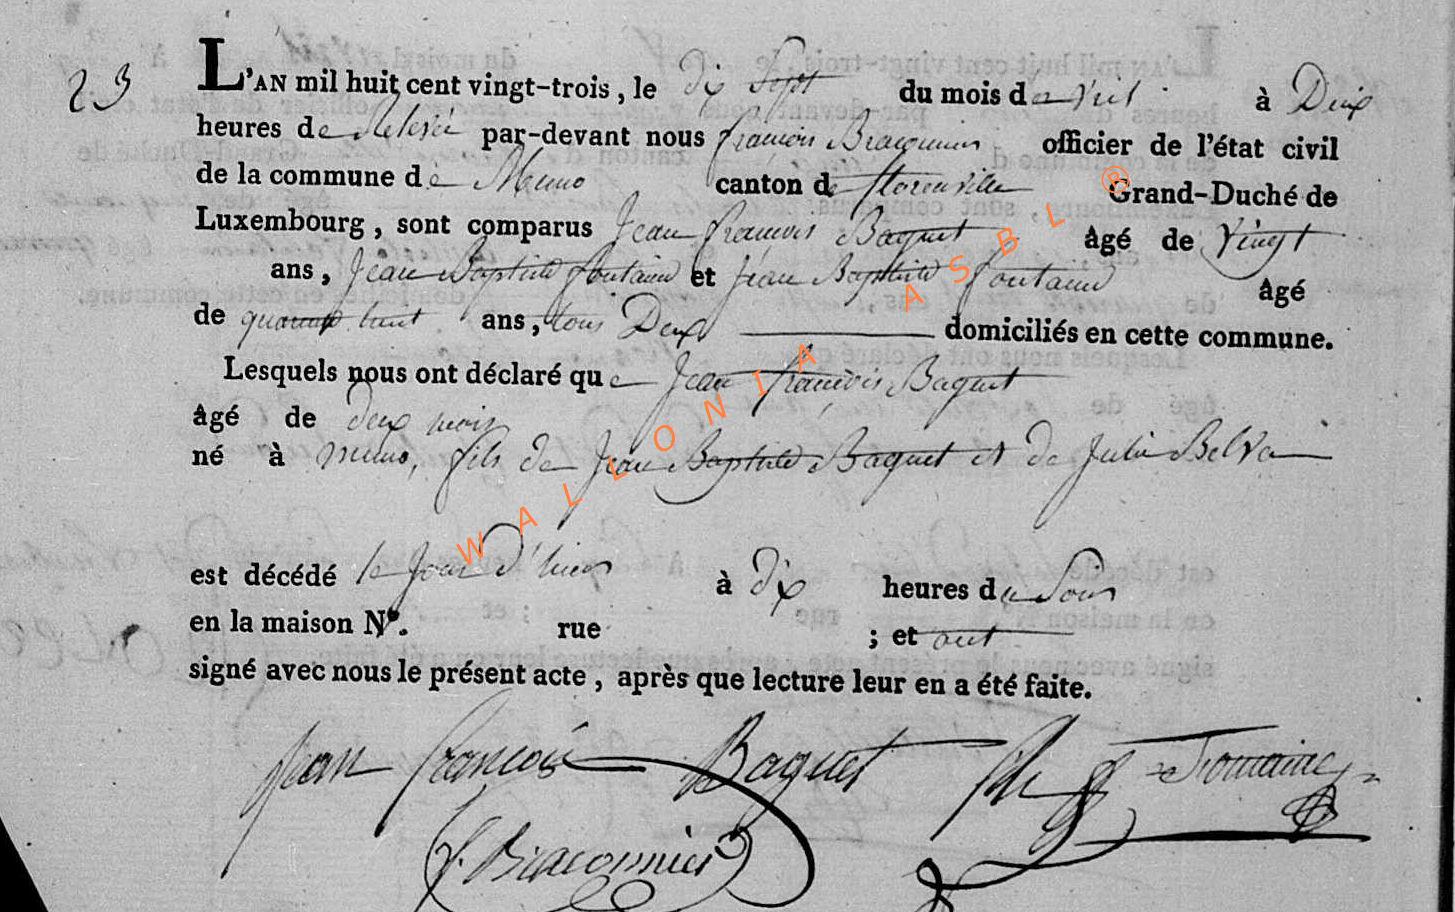 23
L'AN mil huit cent vingt-trois, le dix sept du mois d'avril à Deux
heures de relevée par-devant nous françois Braconnier officier de l'état civil
de la commune de Muno canton de florenville Grand-Duché de
Luxembourg, sont comparus Jean françois Baquet âgé de vingt
ans, Jean Baptiste fontaine et Jean Baptiste fontaine âgé
de quarante huit ans, tous Deux domiciliés en cette commune.
Lesquels nous ont déclaré que Jean françois Baquet
âgé de deux mois
né à muno, fils de Jean Baptiste Baquet et de Julie
est décédé le Jour d'hier à dix heures du Soir
en la maison N°. rue ; et ont
signé avec nous le présent acte, après que lecture leur en a été faite.
Jean françois Baquet
f. Braconnier
WALLONIA ASBL ®